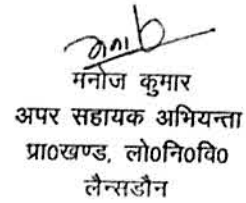 मनोज कुमार
अपर सहायक अभियन्ता
प्रा०खण्ड, लो०नि०वि०
लैन्सडौन